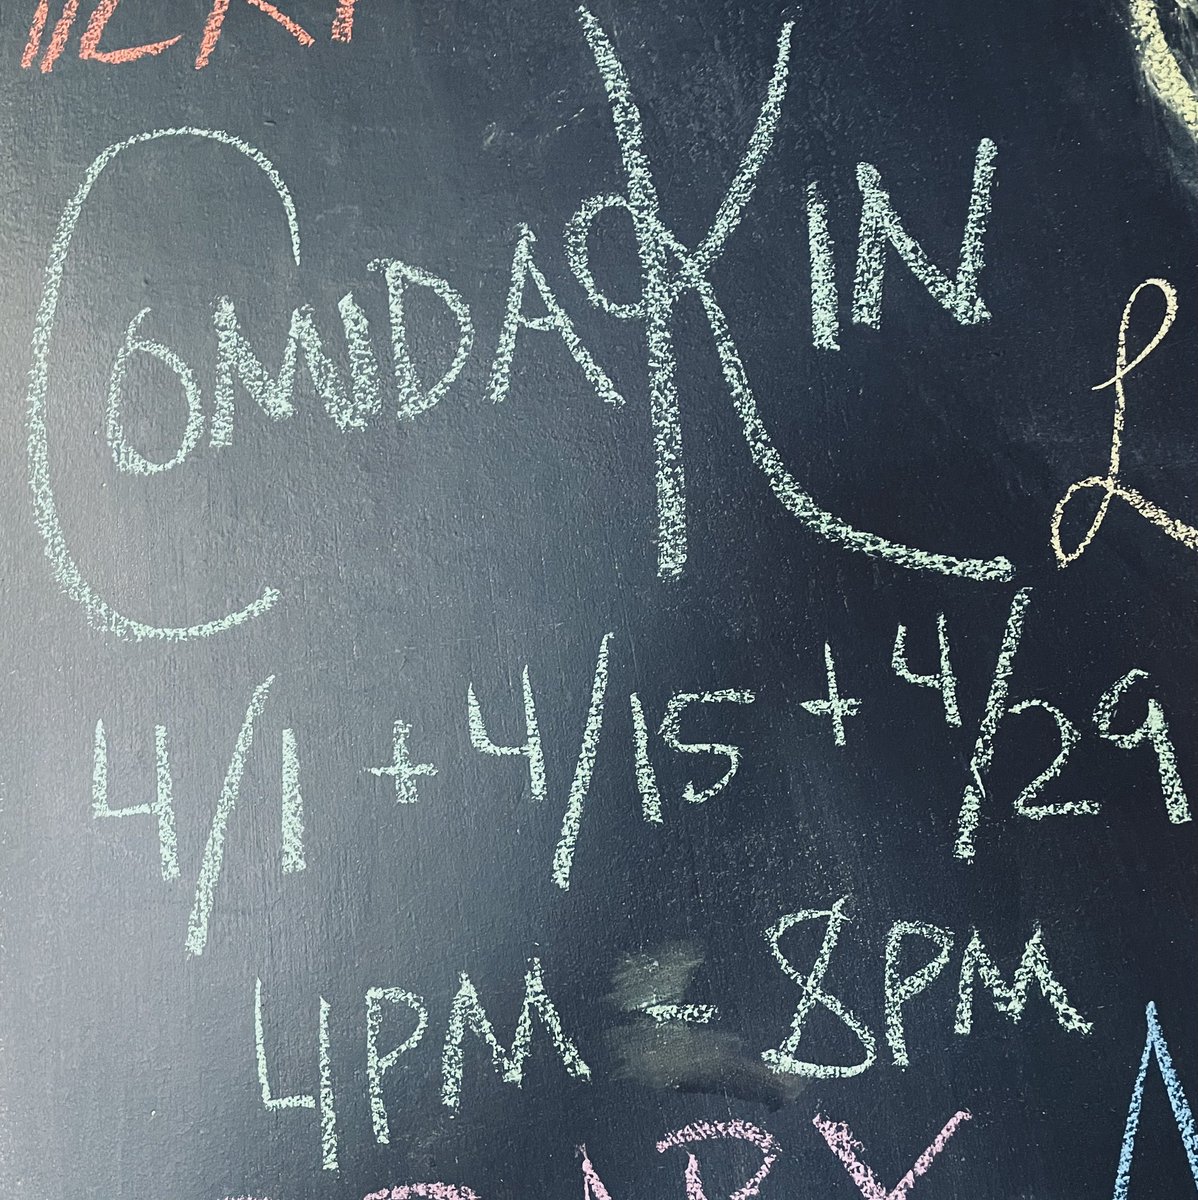 COMIDA KIN
4/1 + 4/15 + 4/29
4PM - 8PM